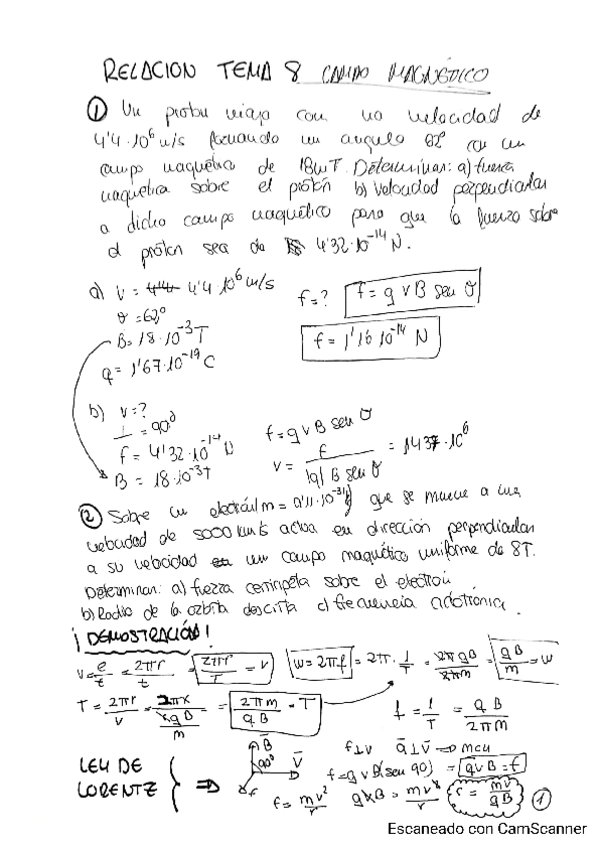 RELACION TEMA 8 CAMPO MAGNÉTICO
① Un protón viaja con una velocidad de
4'4·10⁶ m/s formando un angulo 62º con un
campo magnético de 18mT. Determinar: a) fuerza
magnética sobre el protón b) Velocidad perpendicular
a dicho campo magnético para que la fuerza sobre
el protón sea de 4'32·10⁻¹⁴ N.
a) v = 4'4·10⁶ m/s
f=? f = q v B sen θ
θ = 62º
B = 18·10⁻³ T
f = 1'16·10⁻¹⁴ N
q = 1'67·10⁻¹⁹ C
b) v=?
⊥ = 90º
f = q v B sen θ
f = 4'32·10⁻¹⁴ N
v = f / |q| B sen θ = 1437·10⁶
B = 18·10⁻³ T
② Sobre un electrón m = 9'11·10⁻³¹ que se mueve a una
velocidad de 5000 km/s actua en dirección perpendicular
a su velocidad un campo magnético uniforme de 8T.
Determinar: a) fuerza centripeta sobre el electrón
b) Radio de la orbita descrita c) frecuencia ciclotrónica.
¡DEMOSTRACIÓN!
v = e/t = 2πr/t = 2πr/T = v w = 2πf = 2π·1/T = 2πqB/2πm = qB/m = w
T = 2πr/v = 2πr/(rqB/m) = 2πm/qB = T f = 1/T = qB/2πm
B
90º V
f
LEY DE
LORENTZ
⇒
f⊥v a⊥v ⇒ mcu
f = q v B (sen 90) = qvB = f
f = mv²/r qvB = mv²/r r = mv/qB
①
Escaneado con CamScanner